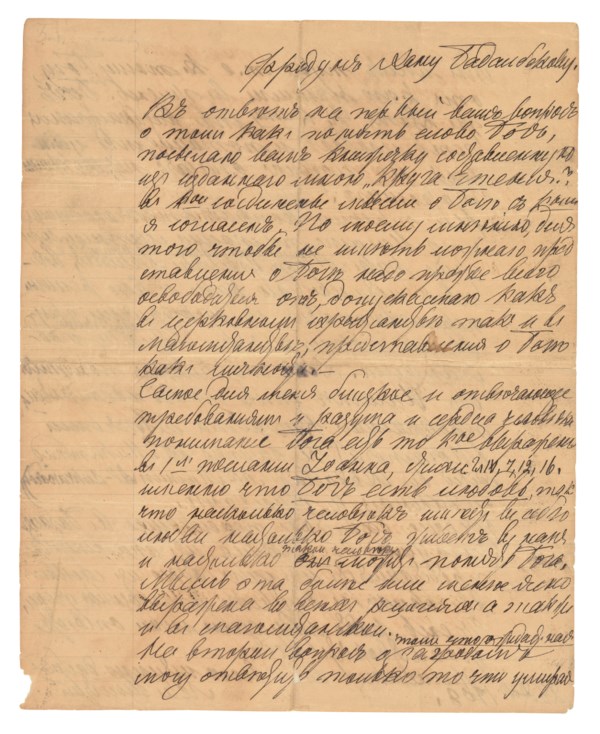 Фридунъ Хану Бадалбекову.
Въ отвѣтъ на первый вашъ вопросъ
о томъ какъ понимать слово Богъ,
посылаю вамъ книжечку составленную
изъ изданнаго мною „Круга чтенія".
въ кой соединены мысли о Богѣ съ коими
я согласенъ. По моему мнѣнію, для
того чтобы не имѣть ложнаго пред
ставленія о Богѣ надо прежде всего
освободиться отъ, допускаемаго какъ
въ церковномъ христіанствѣ такъ и въ
магометанствѣ, представленія о Богѣ
какъ личности.
Самое для меня близкое и отвѣчающее
требованіямъ и разума и сердца
пониманіе Бога есть то кое выражено
въ 1мъ посланіи Іоанна, IV, 7, 12, 16.
именно что Богъ есть любовь, такъ
что насколько человѣкъ имѣетъ въ себѣ
любви настолько Богъ живетъ въ немъ
и настолько такой человѣкъ можетъ понять Бога.
Мысль эта болѣе или менѣе ясно
выражена во всѣхъ религіяхъ а также
и въ магометанской.
На второй вопросъ о томъ что будетъ за гробомъ
могу отвѣтить только то что умирая